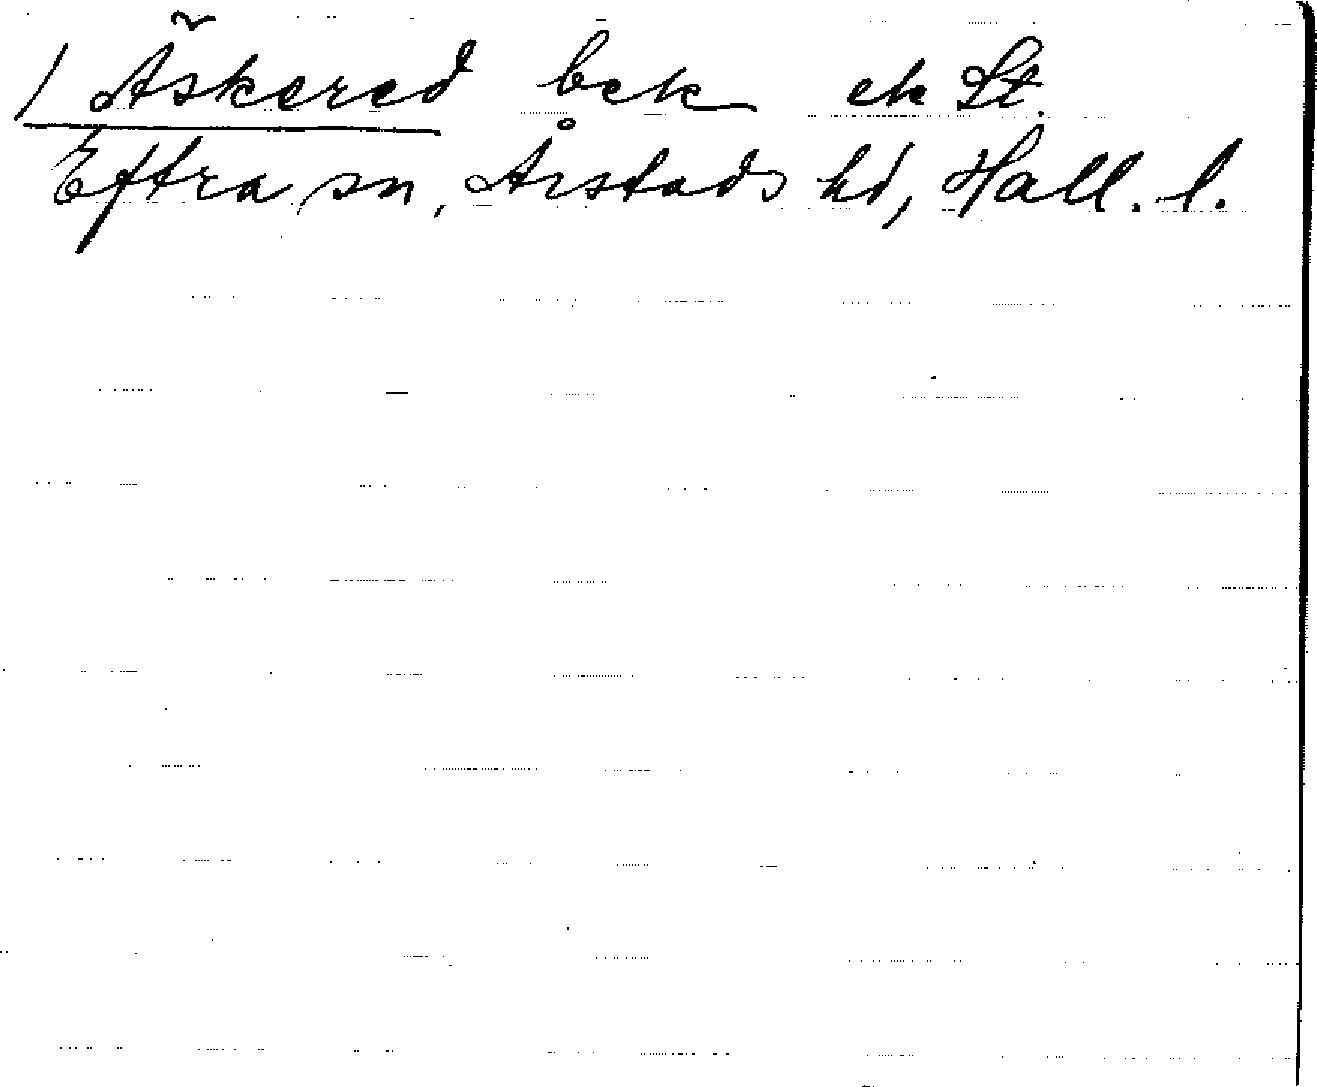 / Äskered bek ek St.
Eftra sn, Årstads hd, Hall. l.